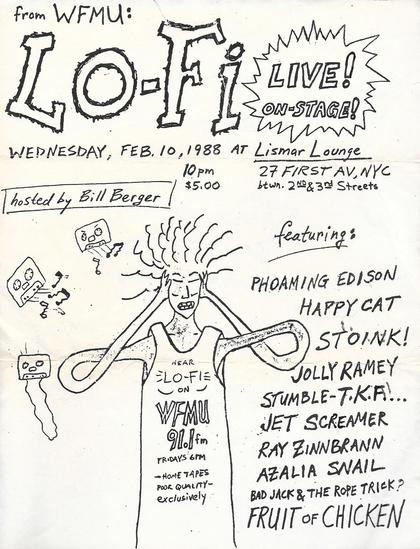 from WFMU:
LO-Fi
LIVE!
ON-STAGE!
WEDNESDAY, FEB. 10, 1988 AT Lismar Lounge
10pm
$5.00
27 FIRST AV, NYC
btwn. 2nd & 3rd Streets
hosted by Bill Berger
featuring:
PHOAMING EDISON
HAPPY CAT
STOINK!
JOLLY RAMEY
STUMBLE-T.K.F!...
JET SCREAMER
RAY ZINNBRANN
AZALIA SNAIL
BAD JACK & THE ROPE TRICK?
FRUIT OF CHICKEN
HEAR
LO-FI
ON
WFMU
91.1 fm
FRIDAYS 6PM
-HOME TAPES
POOR QUALITY-
exclusively